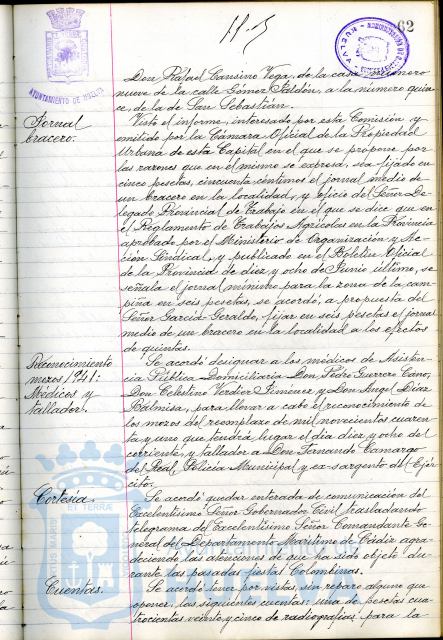 11-5
62
AYUNTAMIENTO DE HUELVA
Don Rafael Cansino Vega, de la casa número
nueve de la calle Gómez Jaldón, a la número quin-
ce, de la de San Sebastián.
Jornal
bracero.
Visto el informe, interesado por esta Comisión, y
emitido por la Cámara Oficial de la Propiedad
Urbana de esta Capital en el que se propone por
las razones que en el mismo se expresa, sea fijado en
cinco pesetas, cincuenta céntimos el jornal medio de
un bracero en la localidad, y oficio del Señor De-
legado Provincial de Trabajo en el que se dice que en
el Reglamento de Trabajos Agrícolas en la Provincia
aprobado por el Ministerio de Organización y Ac-
ción Sindical, y publicado en el Boletín Oficial
de la Provincia de diez y ocho de Junio último, se
señala el jornal mínimo para la zona de la cam-
piña en seis pesetas, se acordó, a propuesta del
Señor García Geraldo, fijar en seis pesetas el jornal
medio de un bracero en la localidad a los efectos
de quintas.
Reconocimiento
mozos 1941.
Médicos y
tallador.
Se acordó designar a los médicos de Asisten-
cia Pública Domiciliaria Don Pedro Guerrero Cano,
Don Celestino Verdier Jiménez y Don Angel Díaz
para llevar a cabo el reconocimiento de
los mozos del reemplazo de mil novecientos cuaren-
ta y uno que tendrá lugar el día diez y ocho del
corriente, y tallador a Don Fernando Camargo
del Real, Policía Municipal y ex-sargento del Ejér-
cito.
Cortesía.
Se acordó quedar enterada de comunicación del
Excelentísimo Señor Gobernador Civil trasladando
telegrama del Excelentísimo Señor Comandante Ge-
neral del Departamento Marítimo de Cádiz agra-
deciendo las atenciones de que ha sido objeto du-
rante las pasadas fiestas Colombinas.
Cuentas.
Se acordó tener por vistas, sin reparo alguno que
oponer, las siguientes cuentas: una de pesetas cua-
trocientas veinte y cinco de radiografías para la